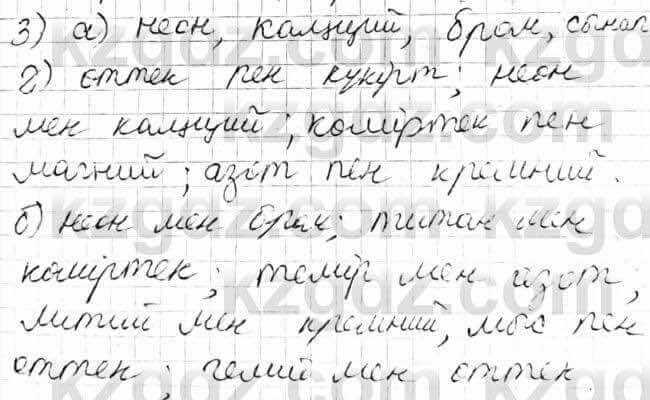 3) а) неон, калций, бром, сынап
2) оттек пен күкірт; неон
мен калций; көміртек пен
магний; азот пен кремний.
б) неон мен бром; титан мен
көміртек; темір мен азот;
литий мен кремний, мыс пен
оттек; гелий мен оттек.